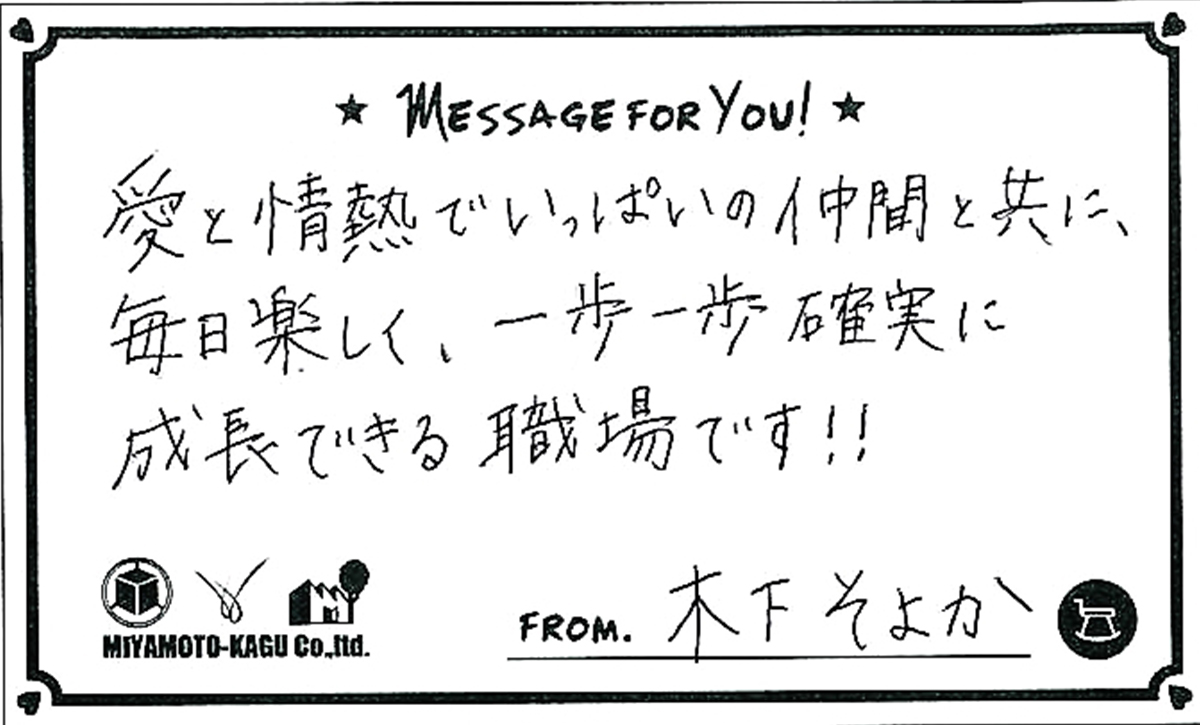 ★ MESSAGE FOR YOU! ★
愛と情熱でいっぱいの仲間と共に、
毎日楽しく、一歩一歩確実に
成長できる職場です!!
MIYAMOTO-KAGU Co.,ltd.
FROM. 木下そよか